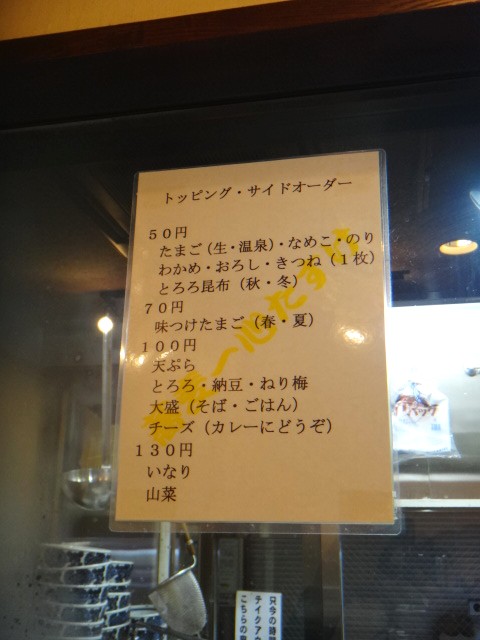 トッピング・サイドオーダー
５０円
たまご（生・温泉）・なめこ・のり
わかめ・おろし・きつね（１枚）
とろろ昆布（秋・冬）
７０円
味つけたまご（春・夏）
１００円
天ぷら
とろろ・納豆・ねり梅
大盛（そば・ごはん）
チーズ（カレーにどうぞ）
１３０円
いなり
山菜
只今の時
テイクア
こちらの